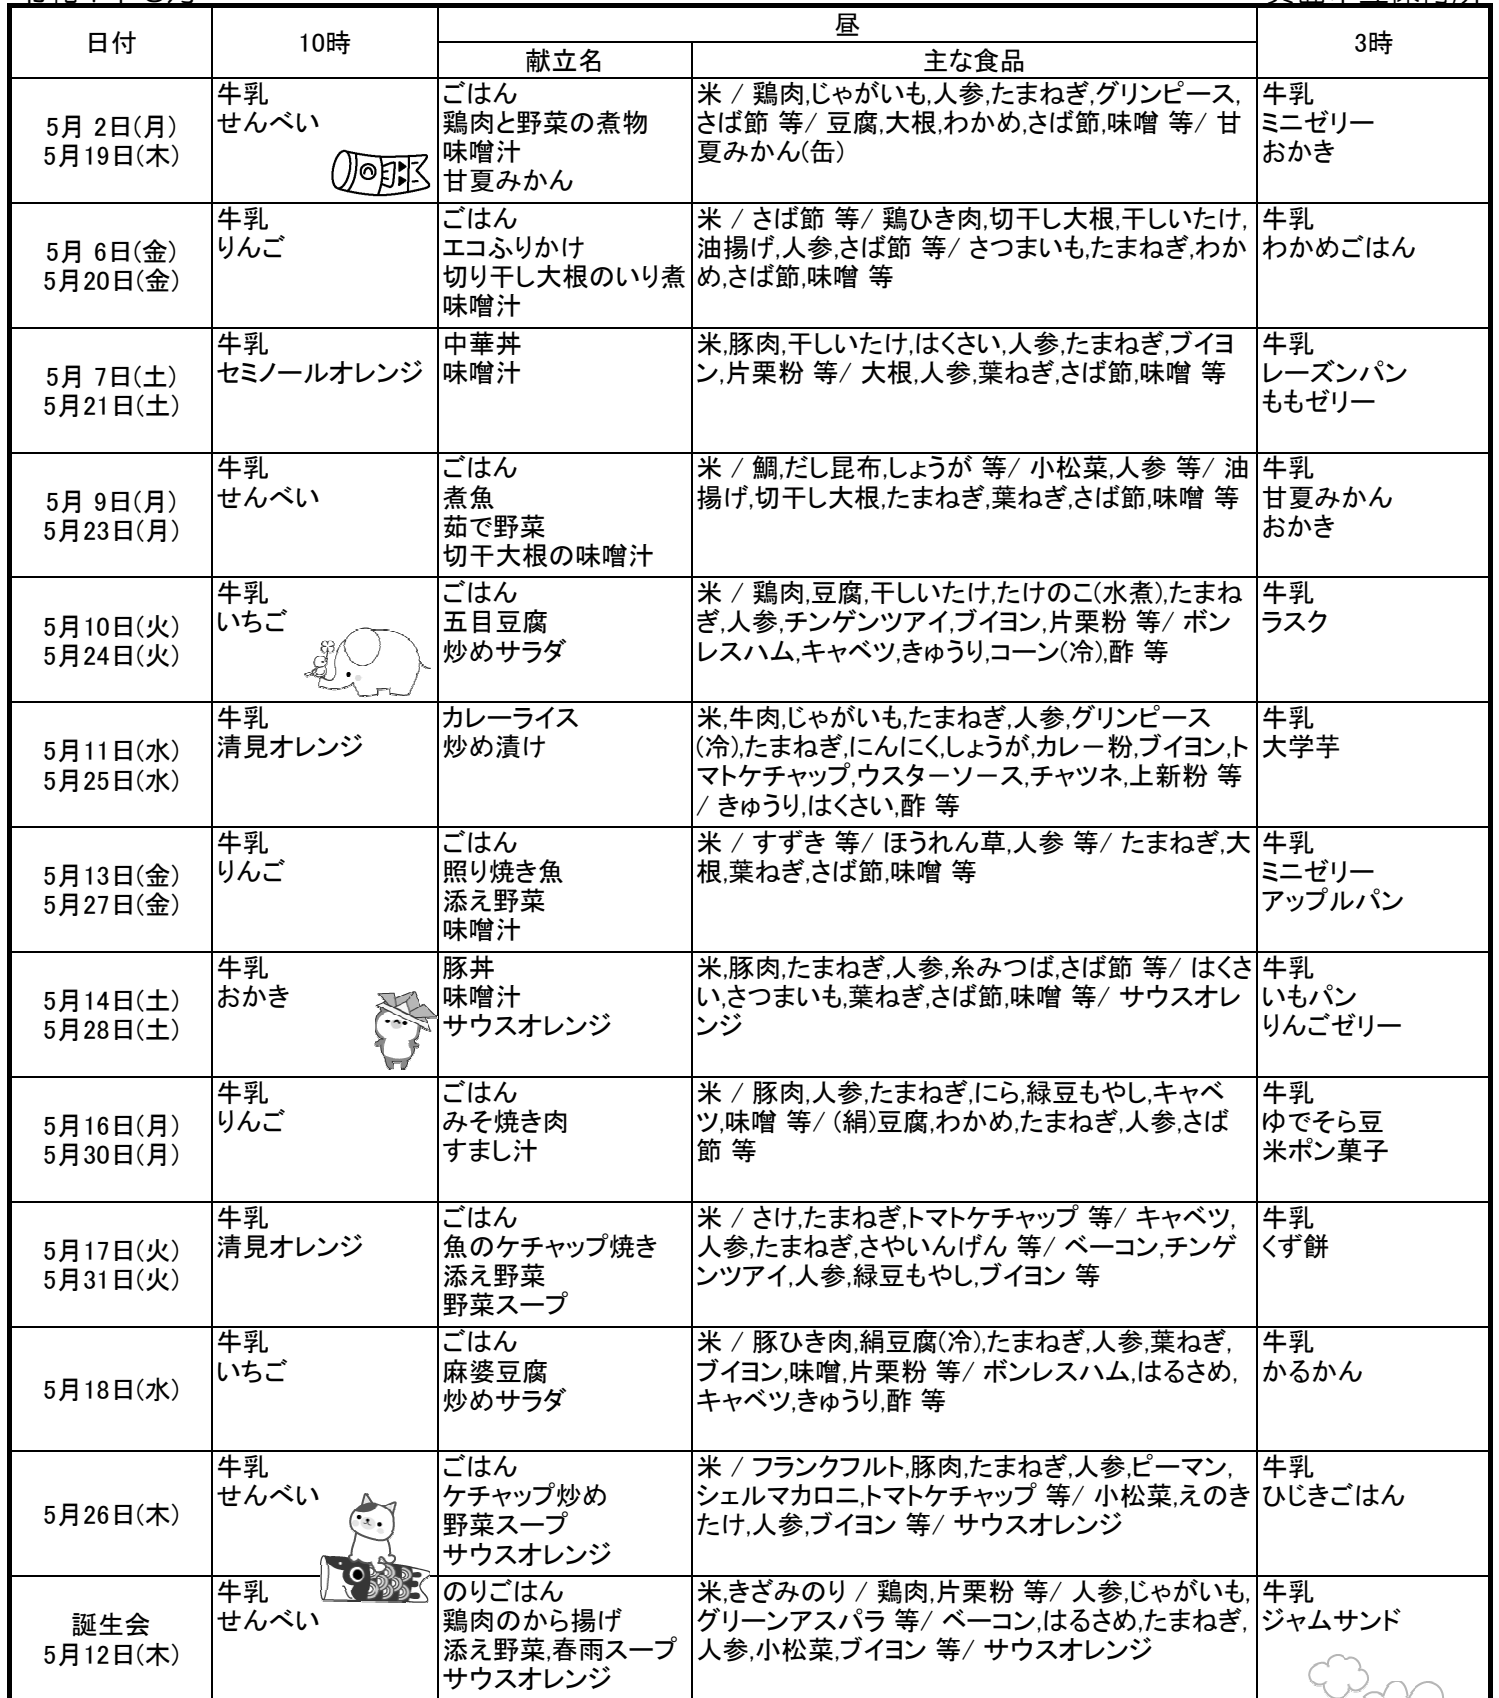 日付
10時
昼
3時
献立名
主な食品
5月 2日(月)
5月19日(木)
牛乳
せんべい
ごはん
鶏肉と野菜の煮物
味噌汁
甘夏みかん
米 / 鶏肉,じゃがいも,人参,たまねぎ,グリンピース,
さば節 等/ 豆腐,大根,わかめ,さば節,味噌 等/ 甘
夏みかん(缶)
牛乳
ミニゼリー
おかき
5月 6日(金)
5月20日(金)
牛乳
りんご
ごはん
エコふりかけ
切り干し大根のいり煮
味噌汁
米 / さば節 等/ 鶏ひき肉,切干し大根,干しいたけ,
油揚げ,人参,さば節 等/ さつまいも,たまねぎ,わか
め,さば節,味噌 等
牛乳
わかめごはん
5月 7日(土)
5月21日(土)
牛乳
セミノールオレンジ
中華丼
味噌汁
米,豚肉,干しいたけ,はくさい,人参,たまねぎ,ブイヨ
ン,片栗粉 等/ 大根,人参,葉ねぎ,さば節,味噌 等
牛乳
レーズンパン
ももゼリー
5月 9日(月)
5月23日(月)
牛乳
せんべい
ごはん
煮魚
茹で野菜
切干大根の味噌汁
米 / 鯛,だし昆布,しょうが 等/ 小松菜,人参 等/ 油
揚げ,切干し大根,たまねぎ,葉ねぎ,さば節,味噌 等
牛乳
甘夏みかん
おかき
5月10日(火)
5月24日(火)
牛乳
いちご
ごはん
五目豆腐
炒めサラダ
米 / 鶏肉,豆腐,干しいたけ,たけのこ(水煮),たまね
ぎ,人参,チンゲンツアイ,ブイヨン,片栗粉 等/ ボン
レスハム,キャベツ,きゅうり,コーン(冷),酢 等
牛乳
ラスク
5月11日(水)
5月25日(水)
牛乳
清見オレンジ
カレーライス
炒め漬け
米,牛肉,じゃがいも,たまねぎ,人参,グリンピース
(冷),たまねぎ,にんにく,しょうが,カレー粉,ブイヨン,ト
マトケチャップ,ウスターソース,チャツネ,上新粉 等
/ きゅうり,はくさい,酢 等
牛乳
大学芋
5月13日(金)
5月27日(金)
牛乳
りんご
ごはん
照り焼き魚
添え野菜
味噌汁
米 / すずき 等/ ほうれん草,人参 等/ たまねぎ,大
根,葉ねぎ,さば節,味噌 等
牛乳
ミニゼリー
アップルパン
5月14日(土)
5月28日(土)
牛乳
おかき
豚丼
味噌汁
サウスオレンジ
米,豚肉,たまねぎ,人参,糸みつば,さば節 等/ はくさ
い,さつまいも,葉ねぎ,さば節,味噌 等/ サウスオレ
ンジ
牛乳
いもパン
りんごゼリー
5月16日(月)
5月30日(月)
牛乳
りんご
ごはん
みそ焼き肉
すまし汁
米 / 豚肉,人参,たまねぎ,にら,緑豆もやし,キャベ
ツ,味噌 等/ (絹)豆腐,わかめ,たまねぎ,人参,さば
節 等
牛乳
ゆでそら豆
米ポン菓子
5月17日(火)
5月31日(火)
牛乳
清見オレンジ
ごはん
魚のケチャップ焼き
添え野菜
野菜スープ
米 / さけ,たまねぎ,トマトケチャップ 等/ キャベツ,
人参,たまねぎ,さやいんげん 等/ ベーコン,チンゲ
ンツアイ,人参,緑豆もやし,ブイヨン 等
牛乳
くず餅
5月18日(水)
牛乳
いちご
ごはん
麻婆豆腐
炒めサラダ
米 / 豚ひき肉,絹豆腐(冷),たまねぎ,人参,葉ねぎ,
ブイヨン,味噌,片栗粉 等/ ボンレスハム,はるさめ,
キャベツ,きゅうり,酢 等
牛乳
かるかん
5月26日(木)
牛乳
せんべい
ごはん
ケチャップ炒め
野菜スープ
サウスオレンジ
米 / フランクフルト,豚肉,たまねぎ,人参,ピーマン,
シェルマカロニ,トマトケチャップ 等/ 小松菜,えのき
たけ,人参,ブイヨン 等/ サウスオレンジ
牛乳
ひじきごはん
誕生会
5月12日(木)
牛乳
せんべい
のりごはん
鶏肉のから揚げ
添え野菜,春雨スープ
サウスオレンジ
米,きざみのり / 鶏肉,片栗粉 等/ 人参,じゃがいも,
グリーンアスパラ 等/ ベーコン,はるさめ,たまねぎ,
人参,小松菜,ブイヨン 等/ サウスオレンジ
牛乳
ジャムサンド